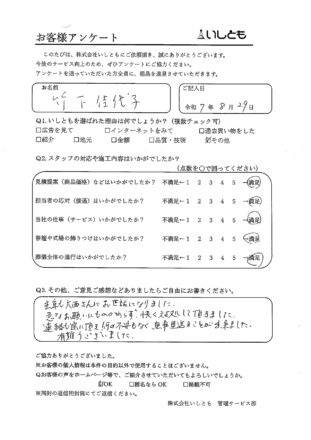 お客様アンケート
いしとも
このたびは、株式会社いしともにご依頼頂き、誠にありがとうございます。
今後のサービス向上のため、ぜひアンケートにご協力ください。
アンケートを送っていただいた方全員に、粗品を進呈させていただきます。
お名前
竹下佳代子
ご記入日
令和7年8月29日
Q1.いしともを選ばれた理由は何でしょうか?(複数チェック可)
□広告を見て □インターネットをみて □過去買い物をした
□紹介 □地元 □金額 □品質・技術 ☑その他
Q2.スタッフの対応や施工内容はいかがでしたか?
(点数を○で囲ってください)
見積提案(商品価格)などはいかがでしたか? 不満足←1 2 3 4 5→満足
担当者の対応(接遇)はいかがでしたか? 不満足←1 2 3 4 5→満足
当社の仕事(サービス)いかがでしたか? 不満足←1 2 3 4 5→満足
祭壇や式場の飾りつけはいかがでしたか? 不満足←1 2 3 4 5→満足
葬儀全体の進行はいかがでしたか? 不満足←1 2 3 4 5→満足
Q3.その他、ご意見ご感想などありましたらご自由にお書きください。
お世話になりました。
急なお願いにもかかわらず、快く対応して頂きました。
連絡も常に頂き何の不安もなく無事見送ることが出来ました。
有難うございました。
ご協力ありがとうございました。
※お客様の個人情報は本件の目的以外で使用することはございません。
Q.お客様の声をホームページ等で、ご紹介させていただいてもよろしいでしょうか。
☑OK □匿名ならOK □掲載不可
※同封の返信用封筒にてご返信ください。
株式会社いしとも 管理サービス部